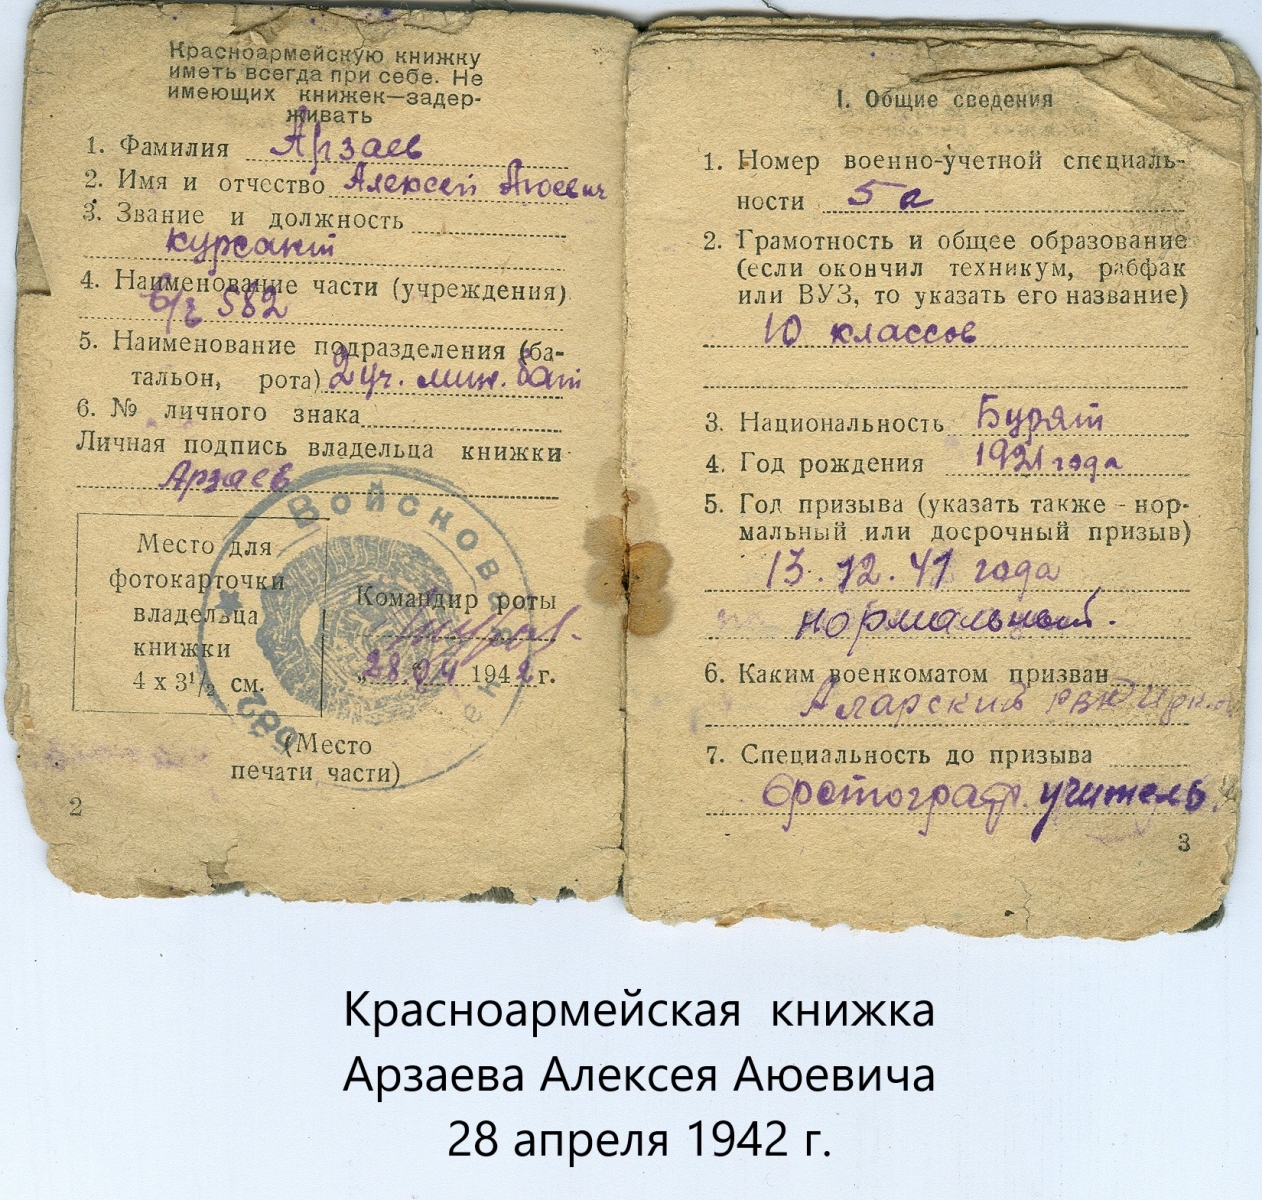 Красноармейскую книжку
иметь всегда при себе. Не
имеющих книжек—задер-
живать
1. Фамилия Арзаев
2. Имя и отчество Алексей Аюевич
3. Звание и должность
курсант
4. Наименование части (учреждения)
в/ч 582
5. Наименование подразделения (ба-
тальон, рота) 2 уч. мин. бат
6. № личного знака
Личная подпись владельца книжки
Арзаев
Место для
фотокарточки
владельца
книжки
4 х 3½ см.
Войсковая
582
Командир роты
„28.04 1942 г.
(Место
печати части)
2
I. Общие сведения
1. Номер военно-учетной специаль-
ности 5а
2. Грамотность и общее образование
(если окончил техникум, рабфак
или ВУЗ, то указать его название)
10 классов
3. Национальность Бурят
4. Год рождения 1921 года
5. Год призыва (указать также - нор-
мальный или досрочный призыв)
13.12.41 года
нормальный.
6. Каким военкоматом призван
Аларский РВК
7. Специальность до призыва
фотограф. учитель.
3
Красноармейская книжка
Арзаева Алексея Аюевича
28 апреля 1942 г.